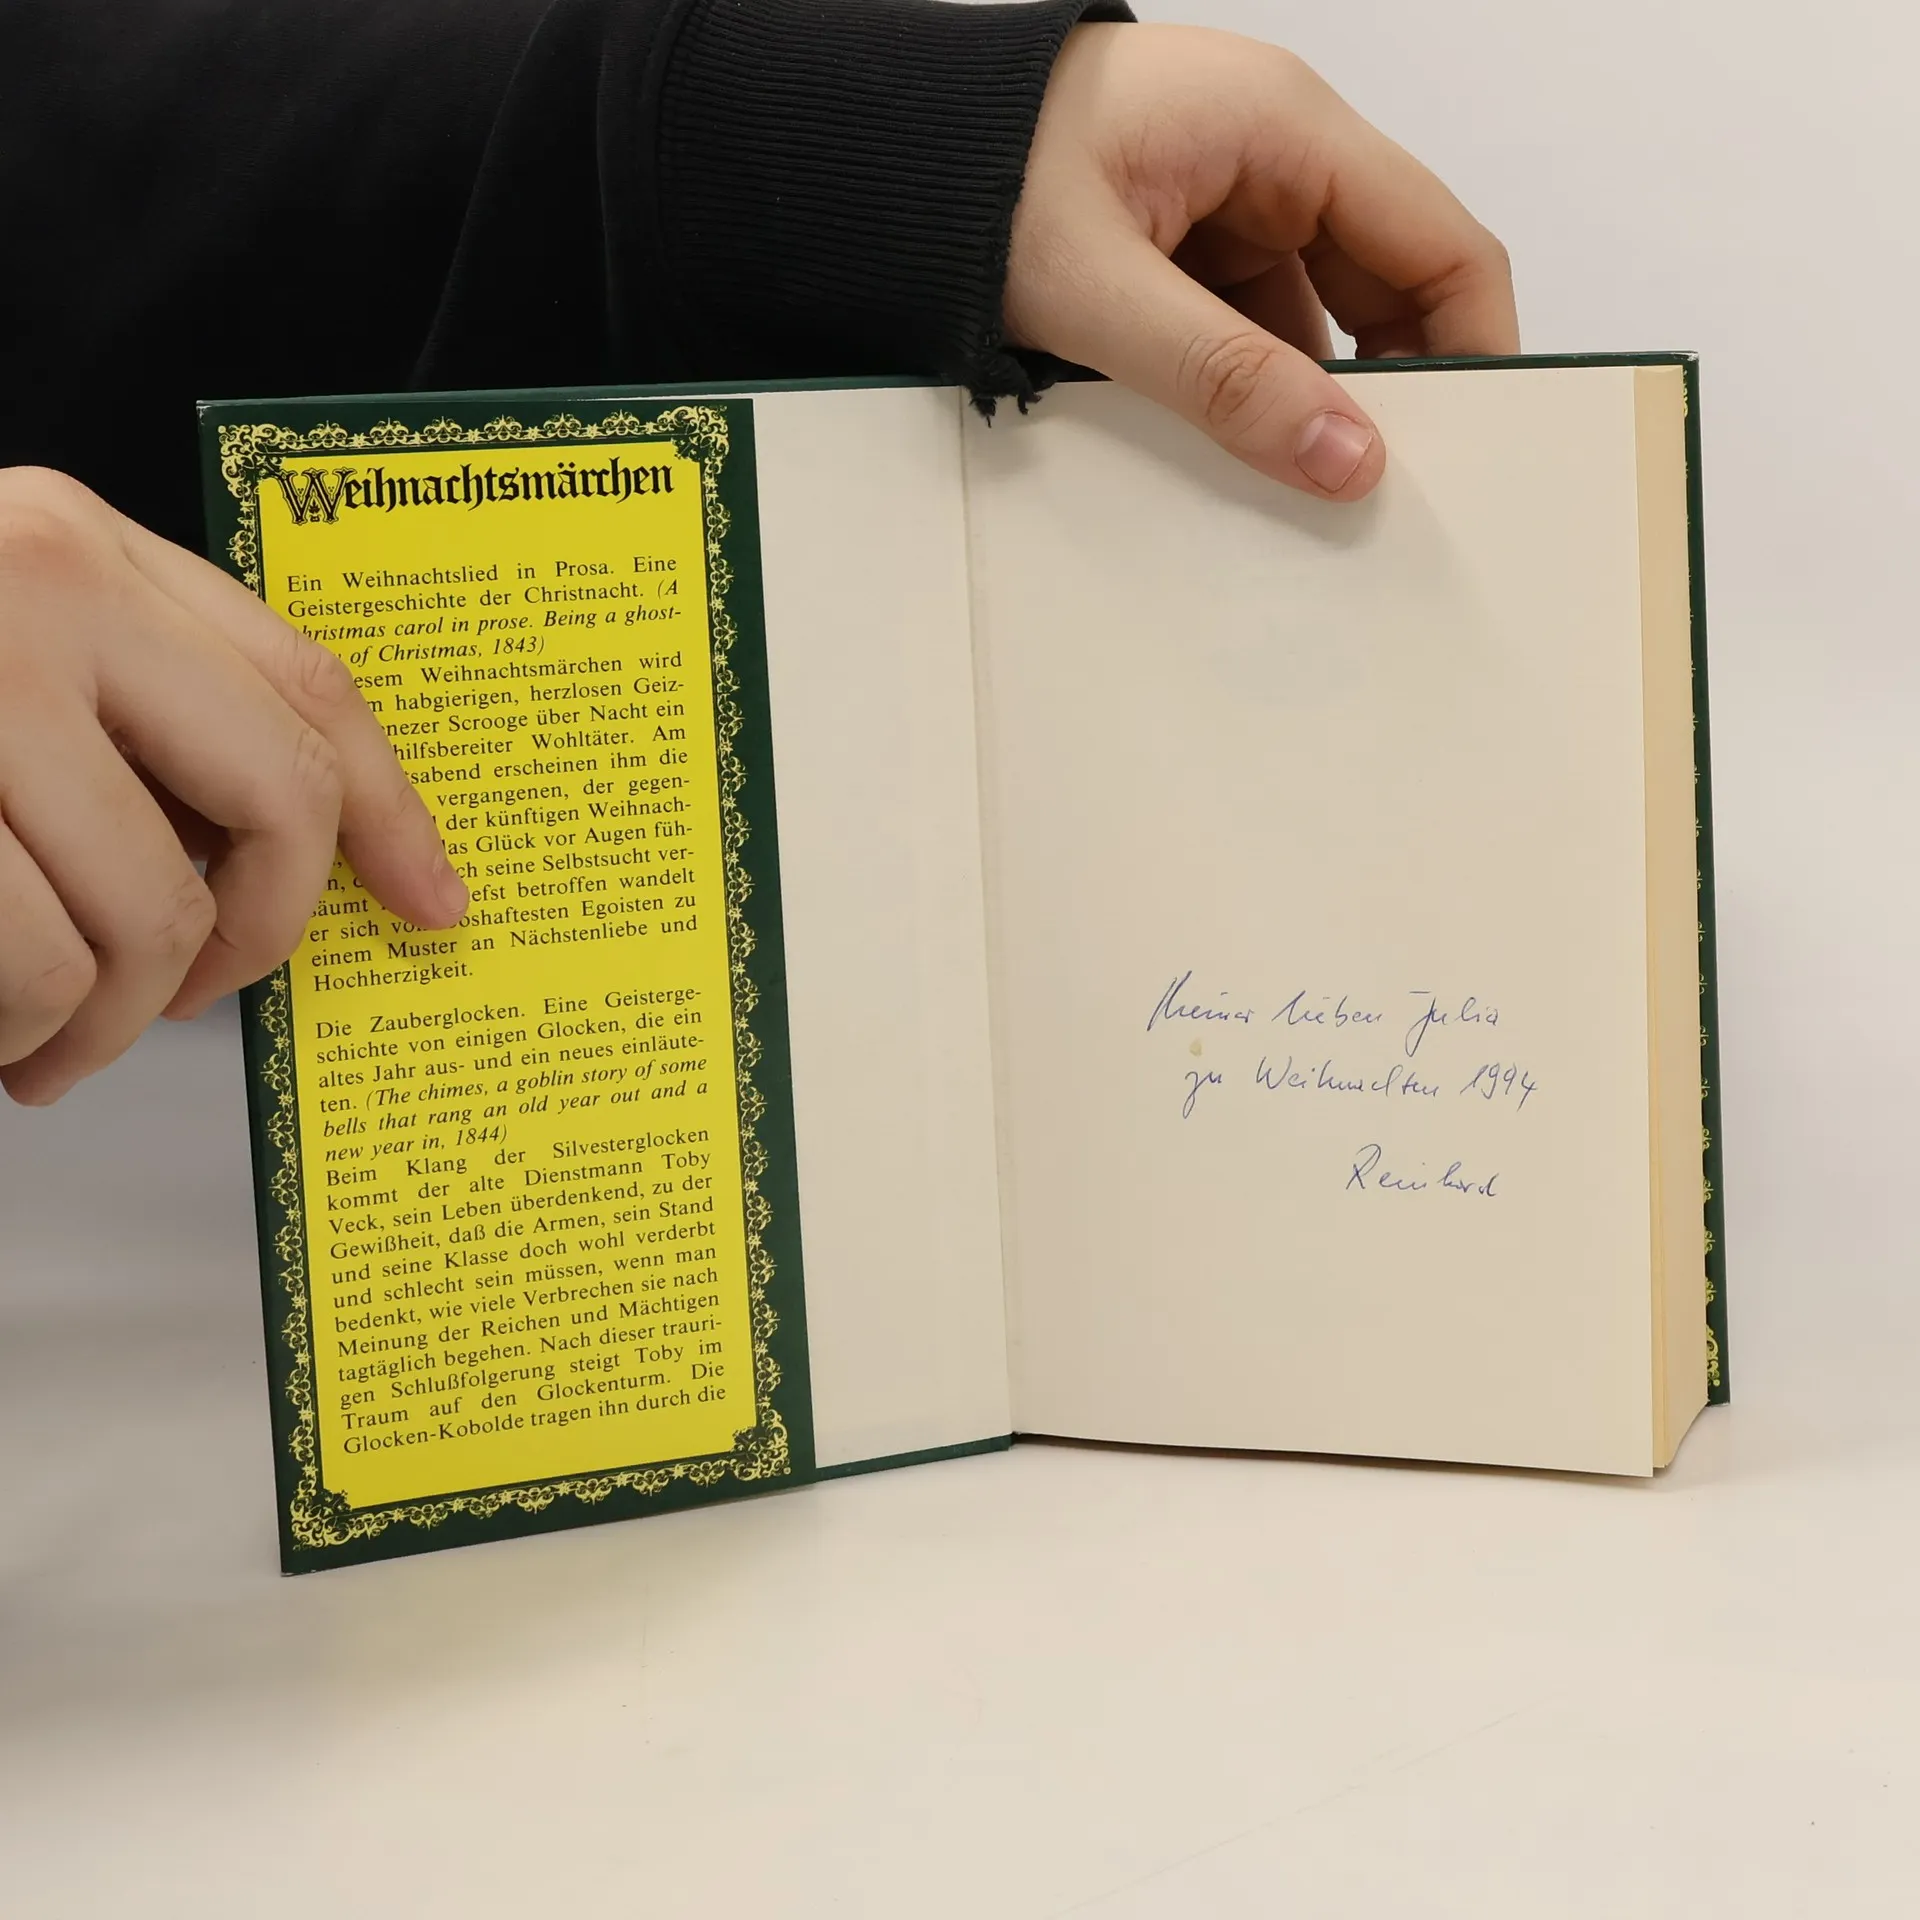 Weihnachtsmärchen
Ein Weihnachtslied in Prosa. Eine
Geistergeschichte der Christnacht. (A
hristmas carol in prose. Being a ghost-
of Christmas, 1843)
esem Weihnachtsmärchen wird
m habgierigen, herzlosen Geiz-
nezer Scrooge über Nacht ein
hilfsbereiter Wohltäter. Am
tsabend erscheinen ihm die
vergangenen, der gegen-
der künftigen Weihnach-
das Glück vor Augen füh-
ch seine Selbstsucht ver-
säumt efst betroffen wandelt
er sich vom boshaftesten Egoisten zu
einem Muster an Nächstenliebe und
Hochherzigkeit.
Die Zauberglocken. Eine Geisterge-
schichte von einigen Glocken, die ein
altes Jahr aus- und ein neues einläute-
ten. (The chimes, a goblin story of some
bells that rang an old year out and a
new year in, 1844)
Beim Klang der Silvesterglocken
kommt der alte Dienstmann Toby
Veck, sein Leben überdenkend, zu der
Gewißheit, daß die Armen, sein Stand
und seine Klasse doch wohl verderbt
und schlecht sein müssen, wenn man
bedenkt, wie viele Verbrechen sie nach
Meinung der Reichen und Mächtigen
tagtäglich begehen. Nach dieser trauri-
gen Schlußfolgerung steigt Toby im
Traum auf den Glockenturm. Die
Glocken-Kobolde tragen ihn durch die
Meiner lieben Julia
zu Weihnachten 1994
Reinhard